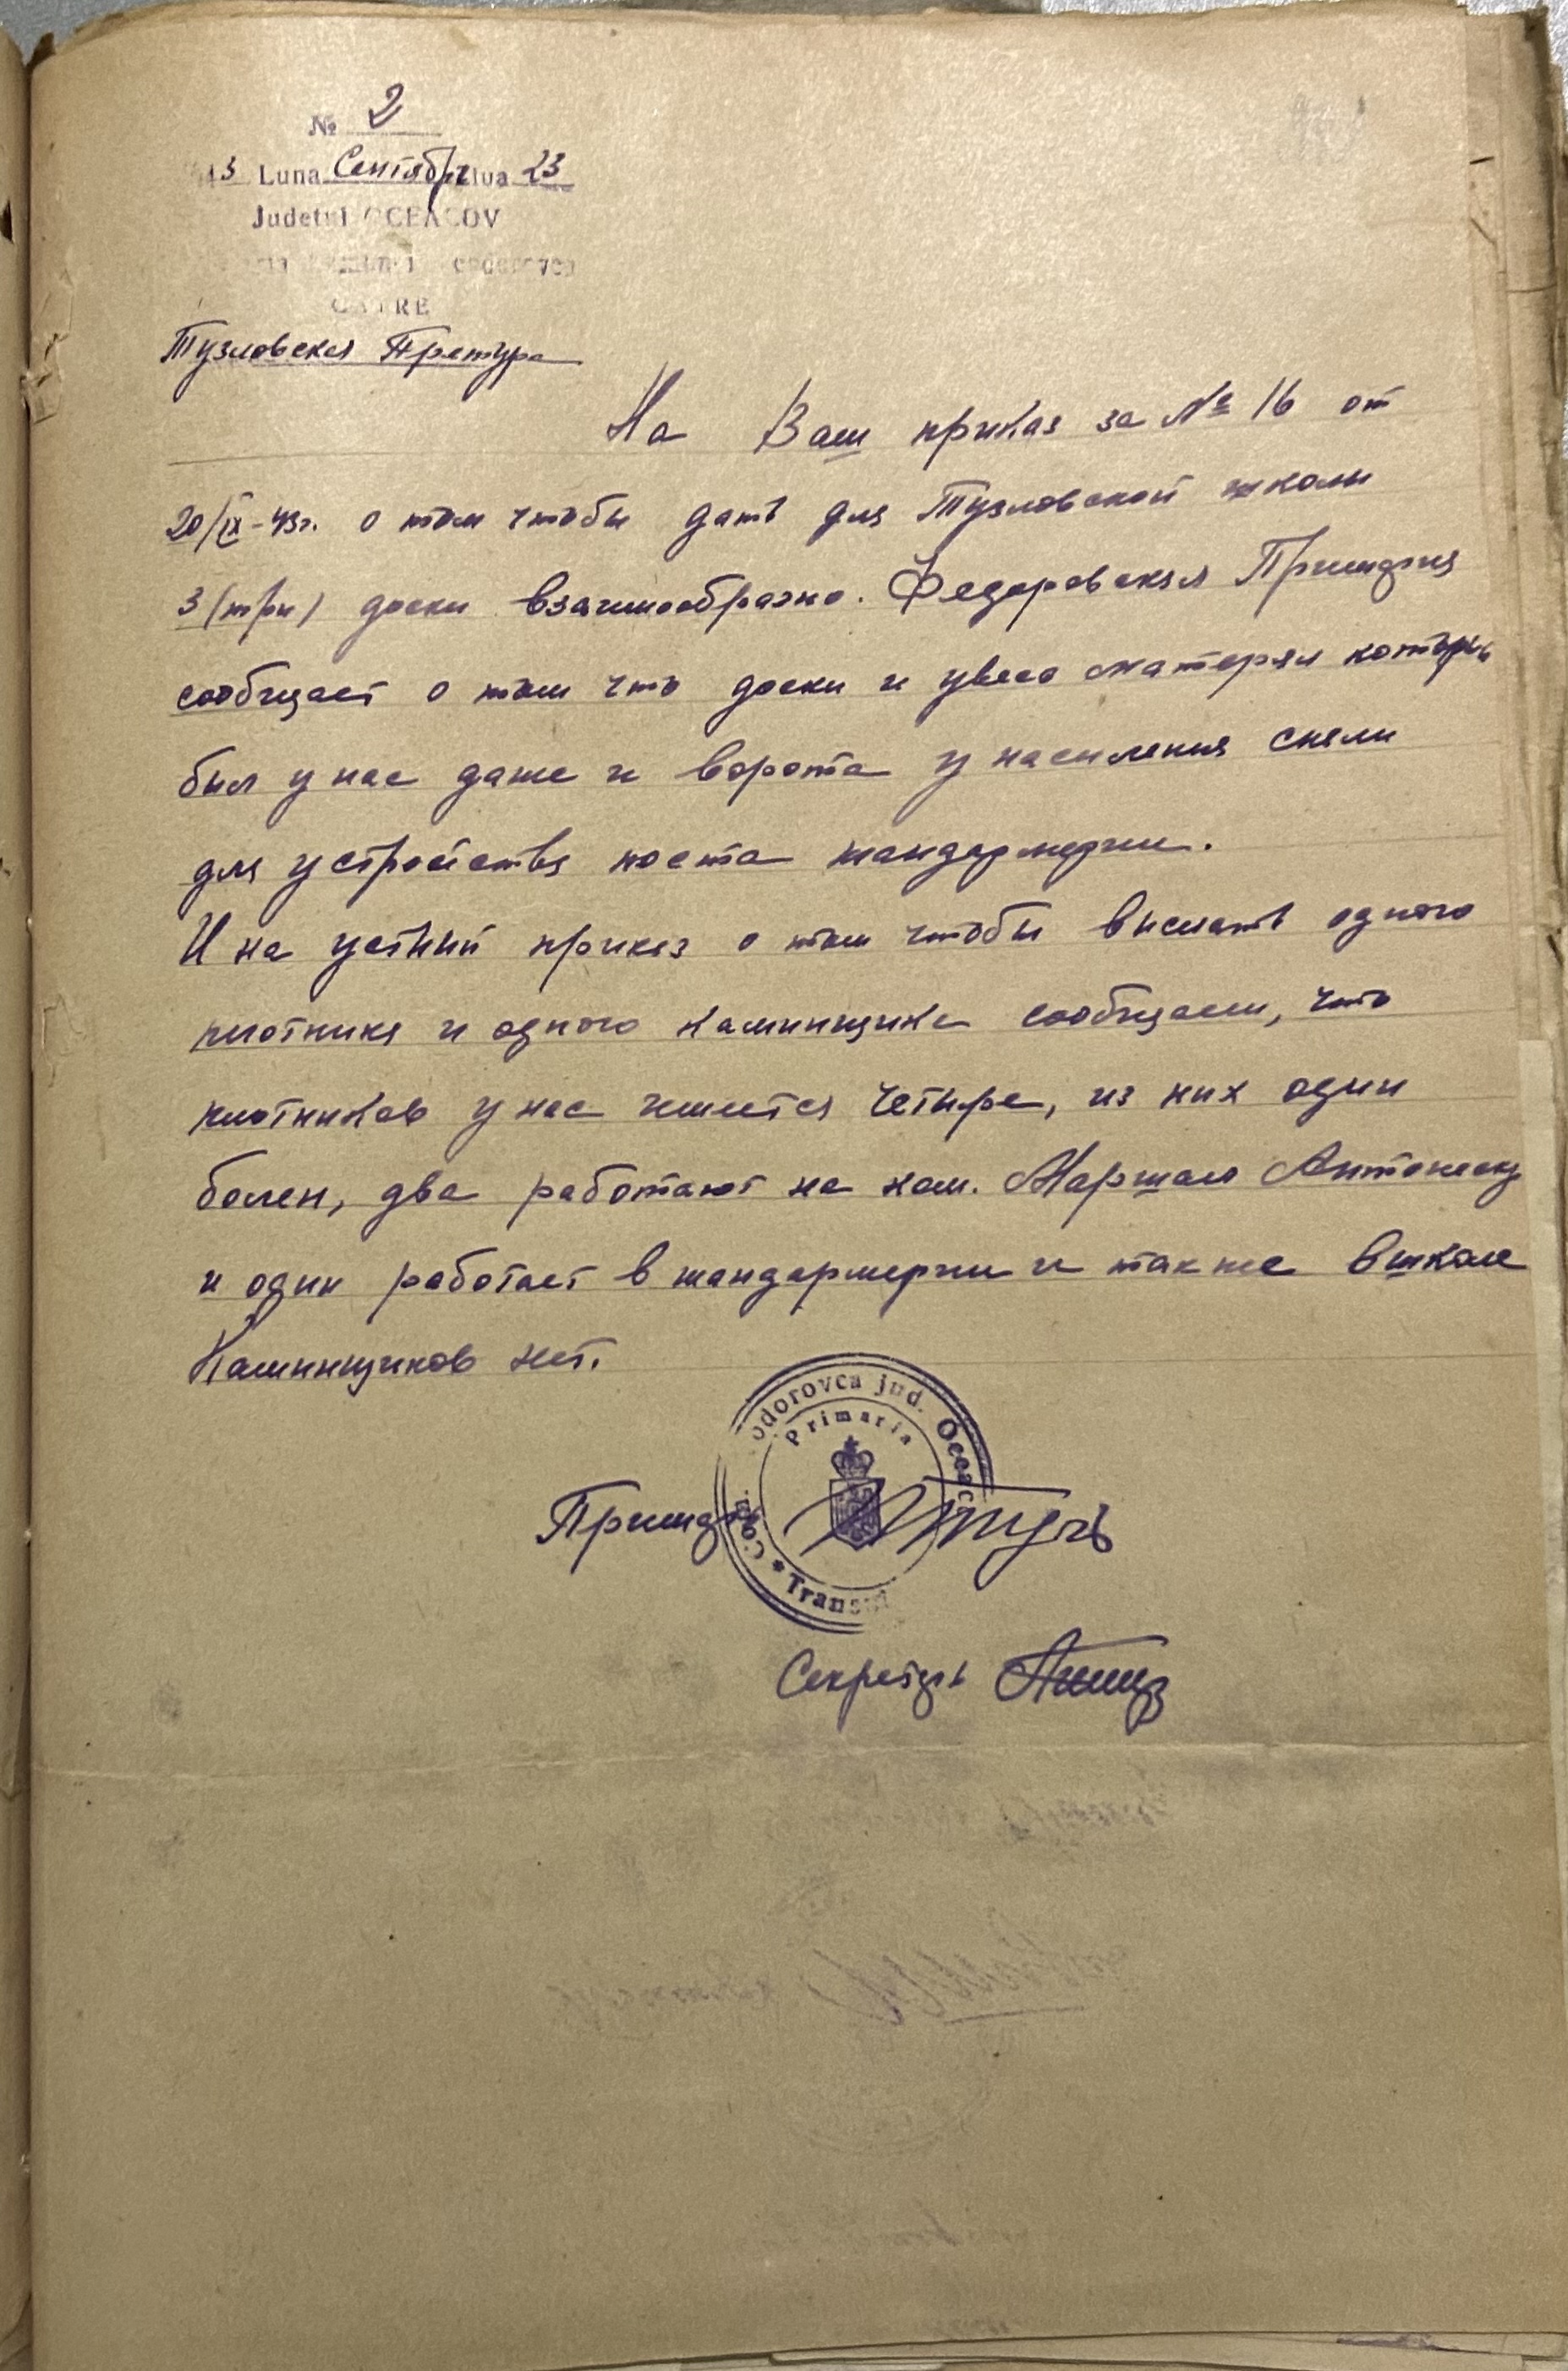 № 2
43 Luna Сентябрь Ziua 23
Judetul OCEACOV
CATRE
Тузловская Претура
На Ваш приказ за № 16 от
20/IX-43г. о том чтобы дать для Тузловской школы
3 (три) доски взаимообразно. Федоровская Примария
сообщает о том что доски и увесь матерял который
был у нас даже и ворота у насиления сняли
для устройства поста жандармерии.
И на устный приказ о том чтобы выслать одного
плотника и одного каминщика сообщаем, что
плотников у нас имеется четыре, из них один
болен, два работают на ком. Маршала Антонеску
и один работает в жандармерии и также в школе
Каминщиков нет.
odorovca jud. Oceac
Primaria
Com
Transni
Примарь
Секретарь